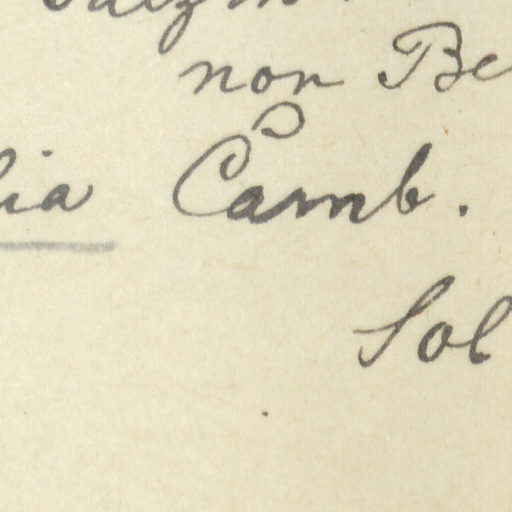 non Be
Camb.
Sol